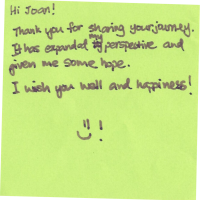 Hi Joan!
Thank you for sharing your journey.
It has expanded my perspective and
given me some hope.
I wish you well and happiness!
!